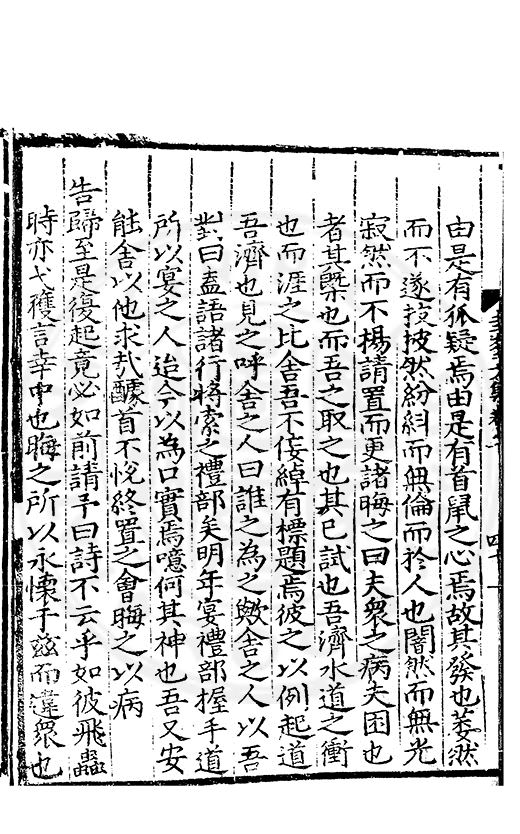 由是有狐疑焉由是有首鼠之心焉故其發也萎然
而不遂技披然紛糾而無倫而於人也闇然而無光
寂然而不揚請置而更諸晦之曰夫衆之病夫因也
者其槩也而吾之取之也其已試也吾濟水道之衝
也而涯之比舍吾不佞綽有標題焉彼之以例起道
吾濟也見之呼舍之人曰誰之為之歟舍之人以吾
對曰盍語諸行將索之禮部矣明年宴禮部握手道
所以宴之人迨今以為口實焉噫何其神也吾又安
能舍以他求㢤醵首不悅終置之會晦之以病
告歸至是復起竟必如前請予曰詩不云乎如彼飛蟲
時亦弋獲言幸中也晦之所以永懷于兹而違衆也
四十一